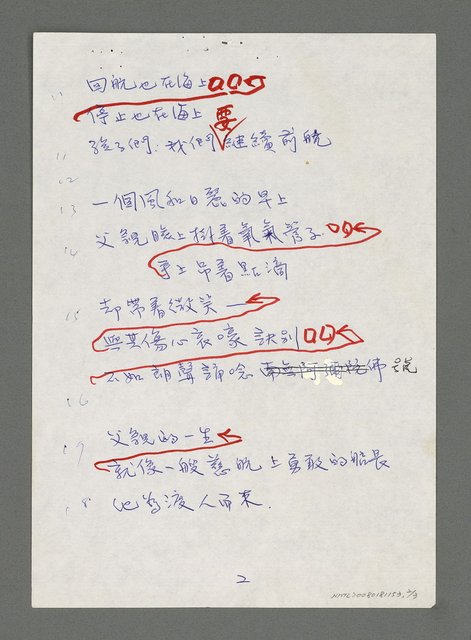 回航也在海上
停止也在海上
孩子們，我們要繼續前航
11
12
13 一個風和日麗的早上
父親臉上掛著氧氣管子
14 手上吊着點滴
15 却帶着微笑——
與其傷心哀嚎訣別
不如朗聲誦唸南無阿彌陀佛號
16
17 父親的一生
就像一般慈航上勇敢的船長
18 他為渡人而來.
2
NMTL20080181153, 2/3